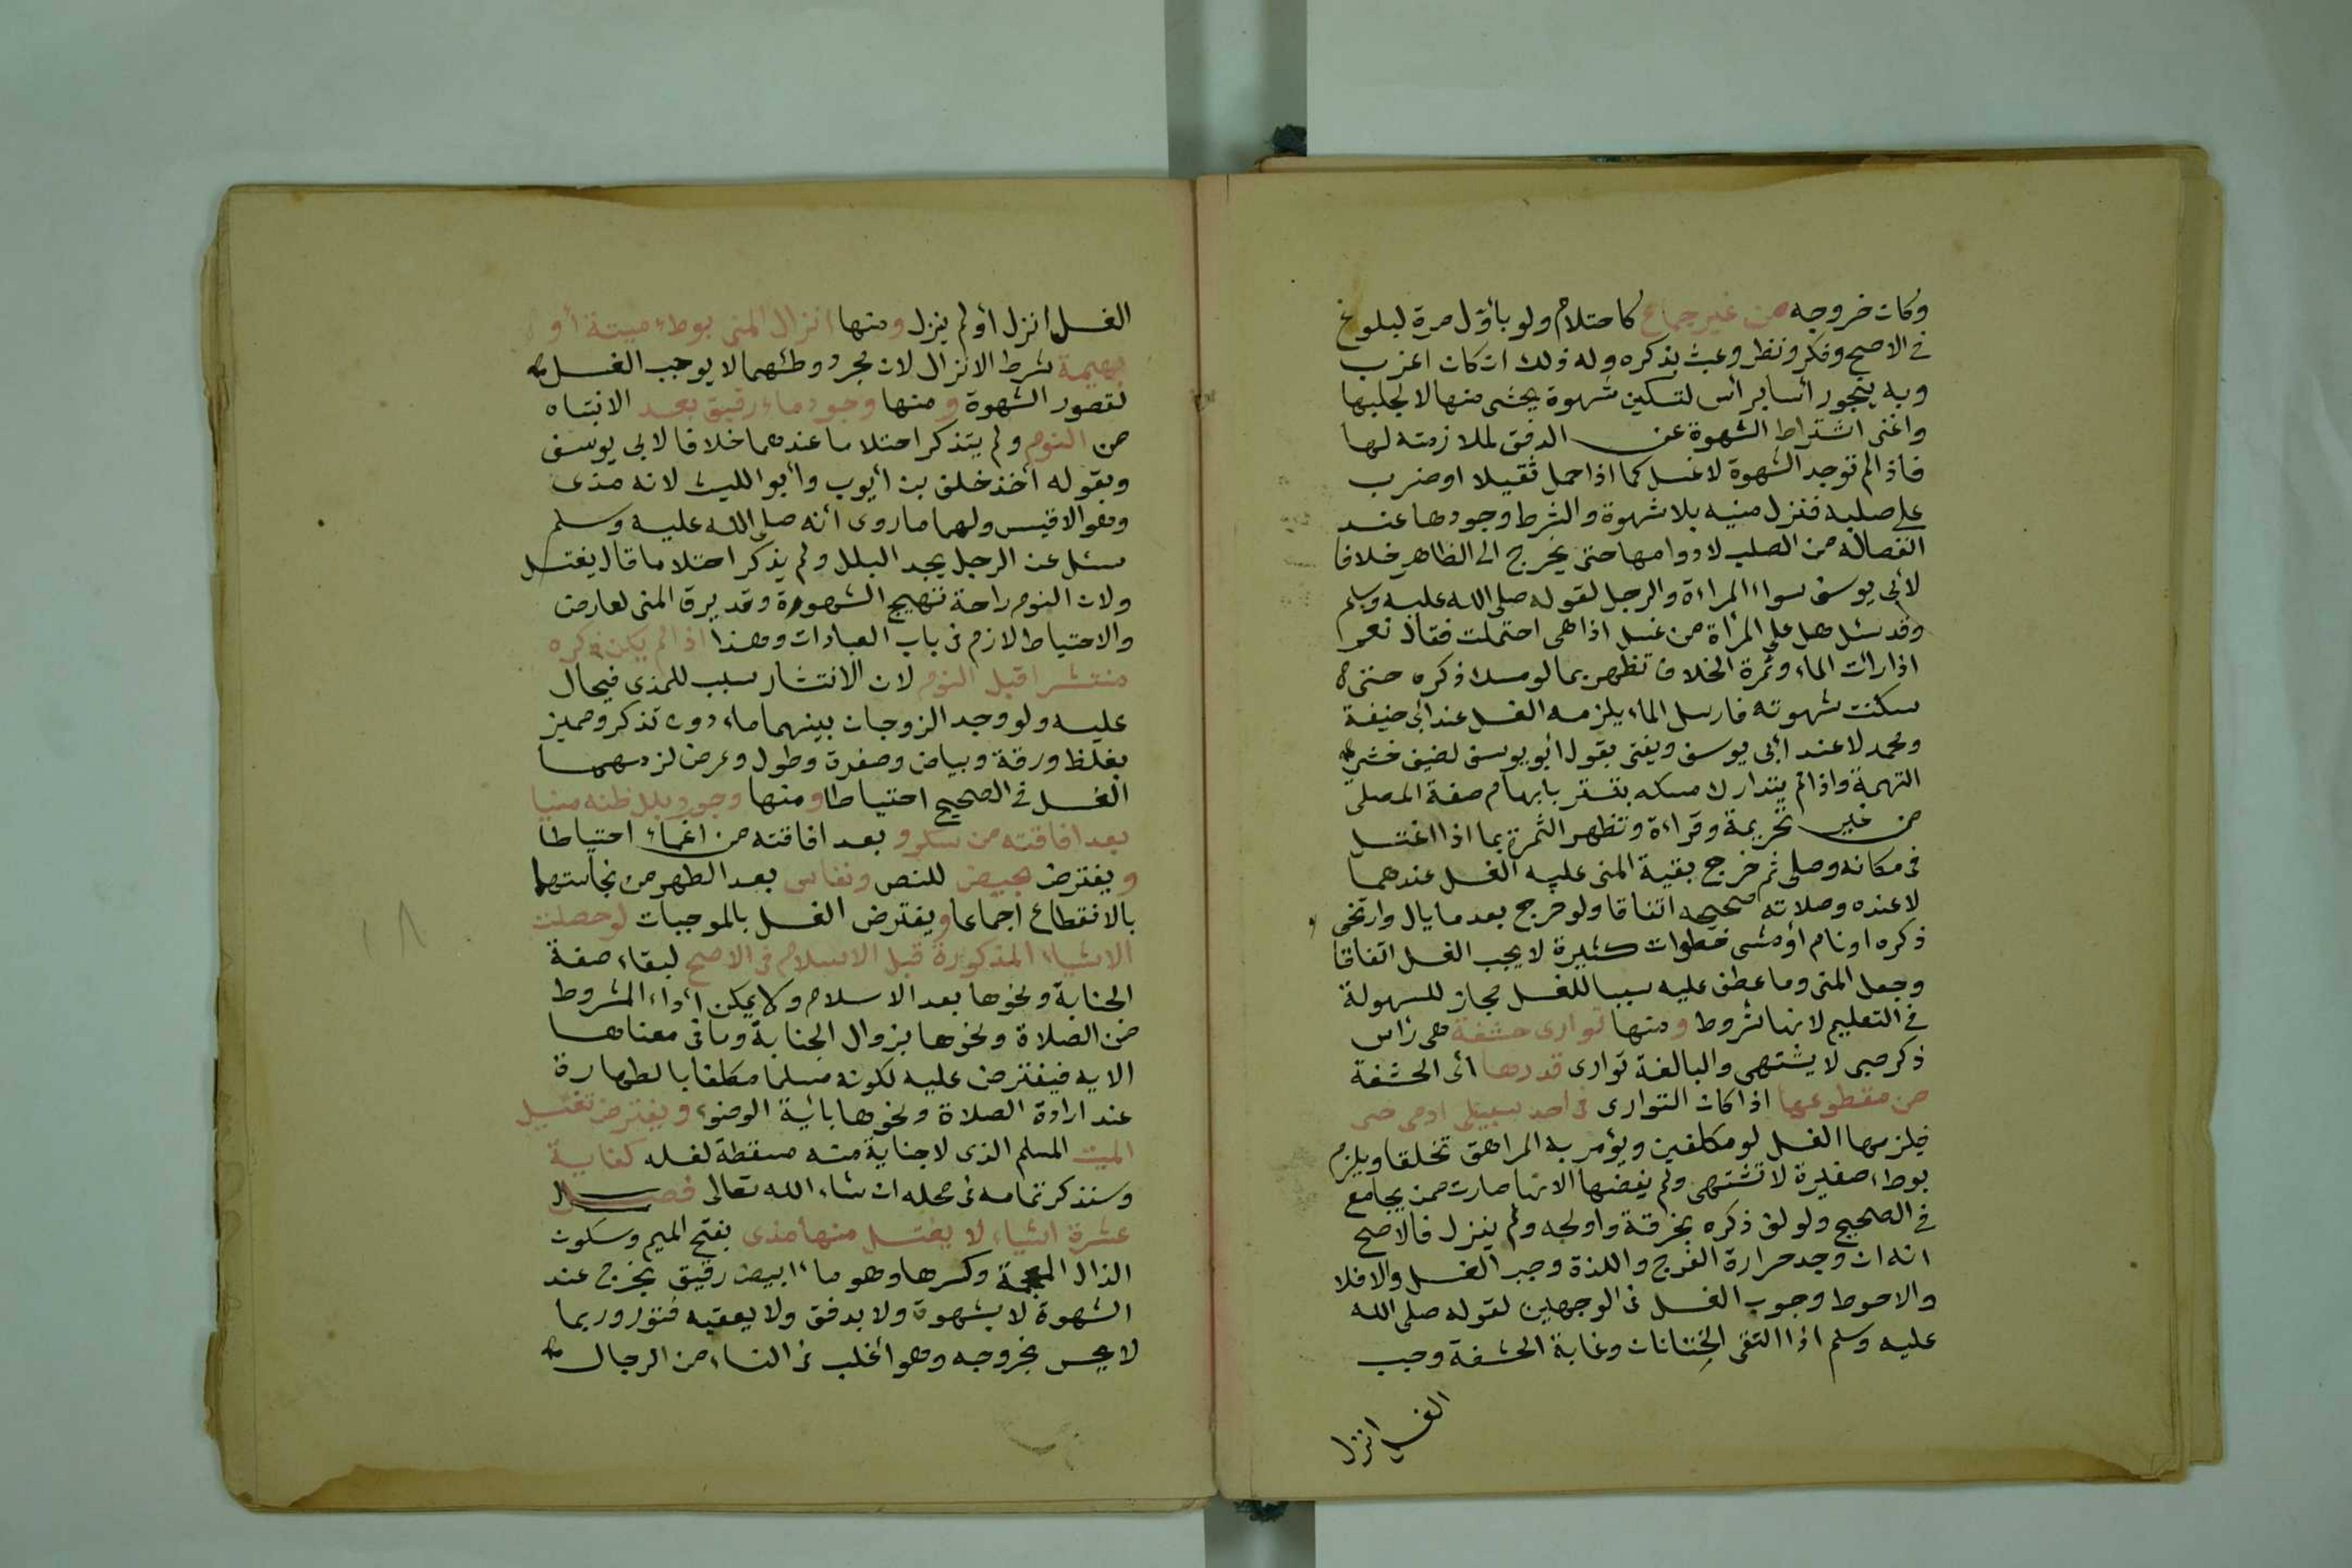 وكان خروجه من غير جماع كاحتلام ولو بأول مرة لبلوغ
في الاصح وفكر ونظر وعبث بذكره وله ذلك ان كان اعزب
وبه ينجو رأسا برأس لتسكين شهوة يخشى منها لا لجلبها
واغنى اشتراط الشهوة عن الدفق لملازمته لها
فاذا لم توجد الشهوة لا غسل كما اذا حمل ثقيلا او ضرب
على صلبه فنزل منيه بلا شهوة والشرط وجودها عند
انفصاله من الصلب لا دوامها حتى يخرج الى الظاهر خلافا
لأبي يوسف سواء المراءة والرجل لقوله صلى الله عليه وسلم
وقد سئل هل على المرأة من غسل اذا هي احتملت فقال نعم
اذا رأت الماء وثمرة الخلاف تظهر بما لو مسك ذكره حتى
سكنت شهوته فارسل الماء يلزمه الغسل عند أبي حنيفة
ومحمد لا عند أبي يوسف ويفتى بقول أبو يوسف لضيف خشي
التهمة واذا لم يتدارك مسكه يتستر بايهام صفة المصلي
من غير تحريمة وقراءة وتظهر الثمرة بما اذا اغتسل
في مكانه وصلى ثم خرج بقية المني عليه الغسل عندهما
لا عنده وصلاته صحيحه اتفاقا ولو خرج بعد ما بال وارتخى
ذكره او نام أو مشى خطوات كثيرة لا يجب الغسل اتفاقا
وجعل المني وما عطف عليه سببا للغسل مجاز للسهولة
في التعليم لانها شروط ومنها توارى حشفة هي رأس
ذكر صبي لا يشتهى والبالغة توارى قدرها أي الحشفة
من مقطوعها اذا كان التوارى في احد سبيلي ادمى حي
فيلزمها الغسل لو مكلفين ويؤمر به المراهق تخلقا ويلزم
بوطء صغيرة لا تشتهى ولم يفضها لانها صارت ممن يجامع
في الصحيح ولو لف ذكره بخرقة واولجه ولم ينزل فالاصح
انه ان وجد حرارة الفرج واللذة وجب الغسل والا فلا
والاحوط وجوب الغسل في الوجهين لقوله صلى الله
عليه وسلم اذا التقى الختانان وغابة الحشفة وجب
الغسل انزل
الغسل انزل أو لم ينزل ومنها انزال المني بوطء ميتة أو
بهيمة شرط الانزال لان مجرد وطئهما لا يوجب الغسل
لقصور الشهوة ومنها وجود ماء رقيق بعد الانتباه
من النوم ولم يتذكر احتلاما عندهما خلافا لابي يوسف
وبقوله أخذ خلف بن أيوب وأبو الليث لانه مذى
وهو الاقيس ولهما ما روى أنه صلى الله عليه وسلم
سئل عن الرجل يجد البلل ولم يذكر احتلاما قال يغتسل
ولان النوم راحة تهيج الشهوة وقد يرق المني لعارض
والاحتياط لازم في باب العبادات وهذا اذا لم يكن ذكره
منتشرا قبل النوم لان الانتشار سبب للمذى فيحال
عليه ولو وجد الزوجان بينهما ماء دون تذكر ومميز
بغلظ ورقة وبياض وصفرة وطول وعرض لزمهما
الغسل في الصحيح احتياطا ومنها وجود بلل ظنه منيا
بعد افاقته من سكر و بعد افاقته من اغماء احتياطا
ويفترض بحيض للنص ونفاس بعد الطهر من نجاستهما
بالانقطاع اجماعا ويفترض الغسل بالموجبات لو حصلت
الاشياء المذكورة قبل الاسلام في الاصح لبقاء صفة
الجنابة ونحوها بعد الاسلام ولا يمكن أداء المشروط
من الصلاة ونحوها بزوال الجنابة وما في معناها
الا به فيفترض عليه لكونه مسلما مكلفا بالطهارة
عند ارادة الصلاة ونحوها بائية الوضوء ويفترض تغسيل
الميت المسلم الذي لا جناية منه مسقطة لغسله كفاية
وسنذكر تمامه في محله ان شاء الله تعالى فصل
عشرة اشياء لا يغتسل منها مذى بفتح الميم وسكون
الذال المعجمة وكسرها وهو ماء ابيض رقيق يخرج عند
الشهوة لا بشهوة ولا بدفق ولا يعقبه فتور وربما
لا يحس بخروجه وهو أغلب في النساء من الرجال
١٨